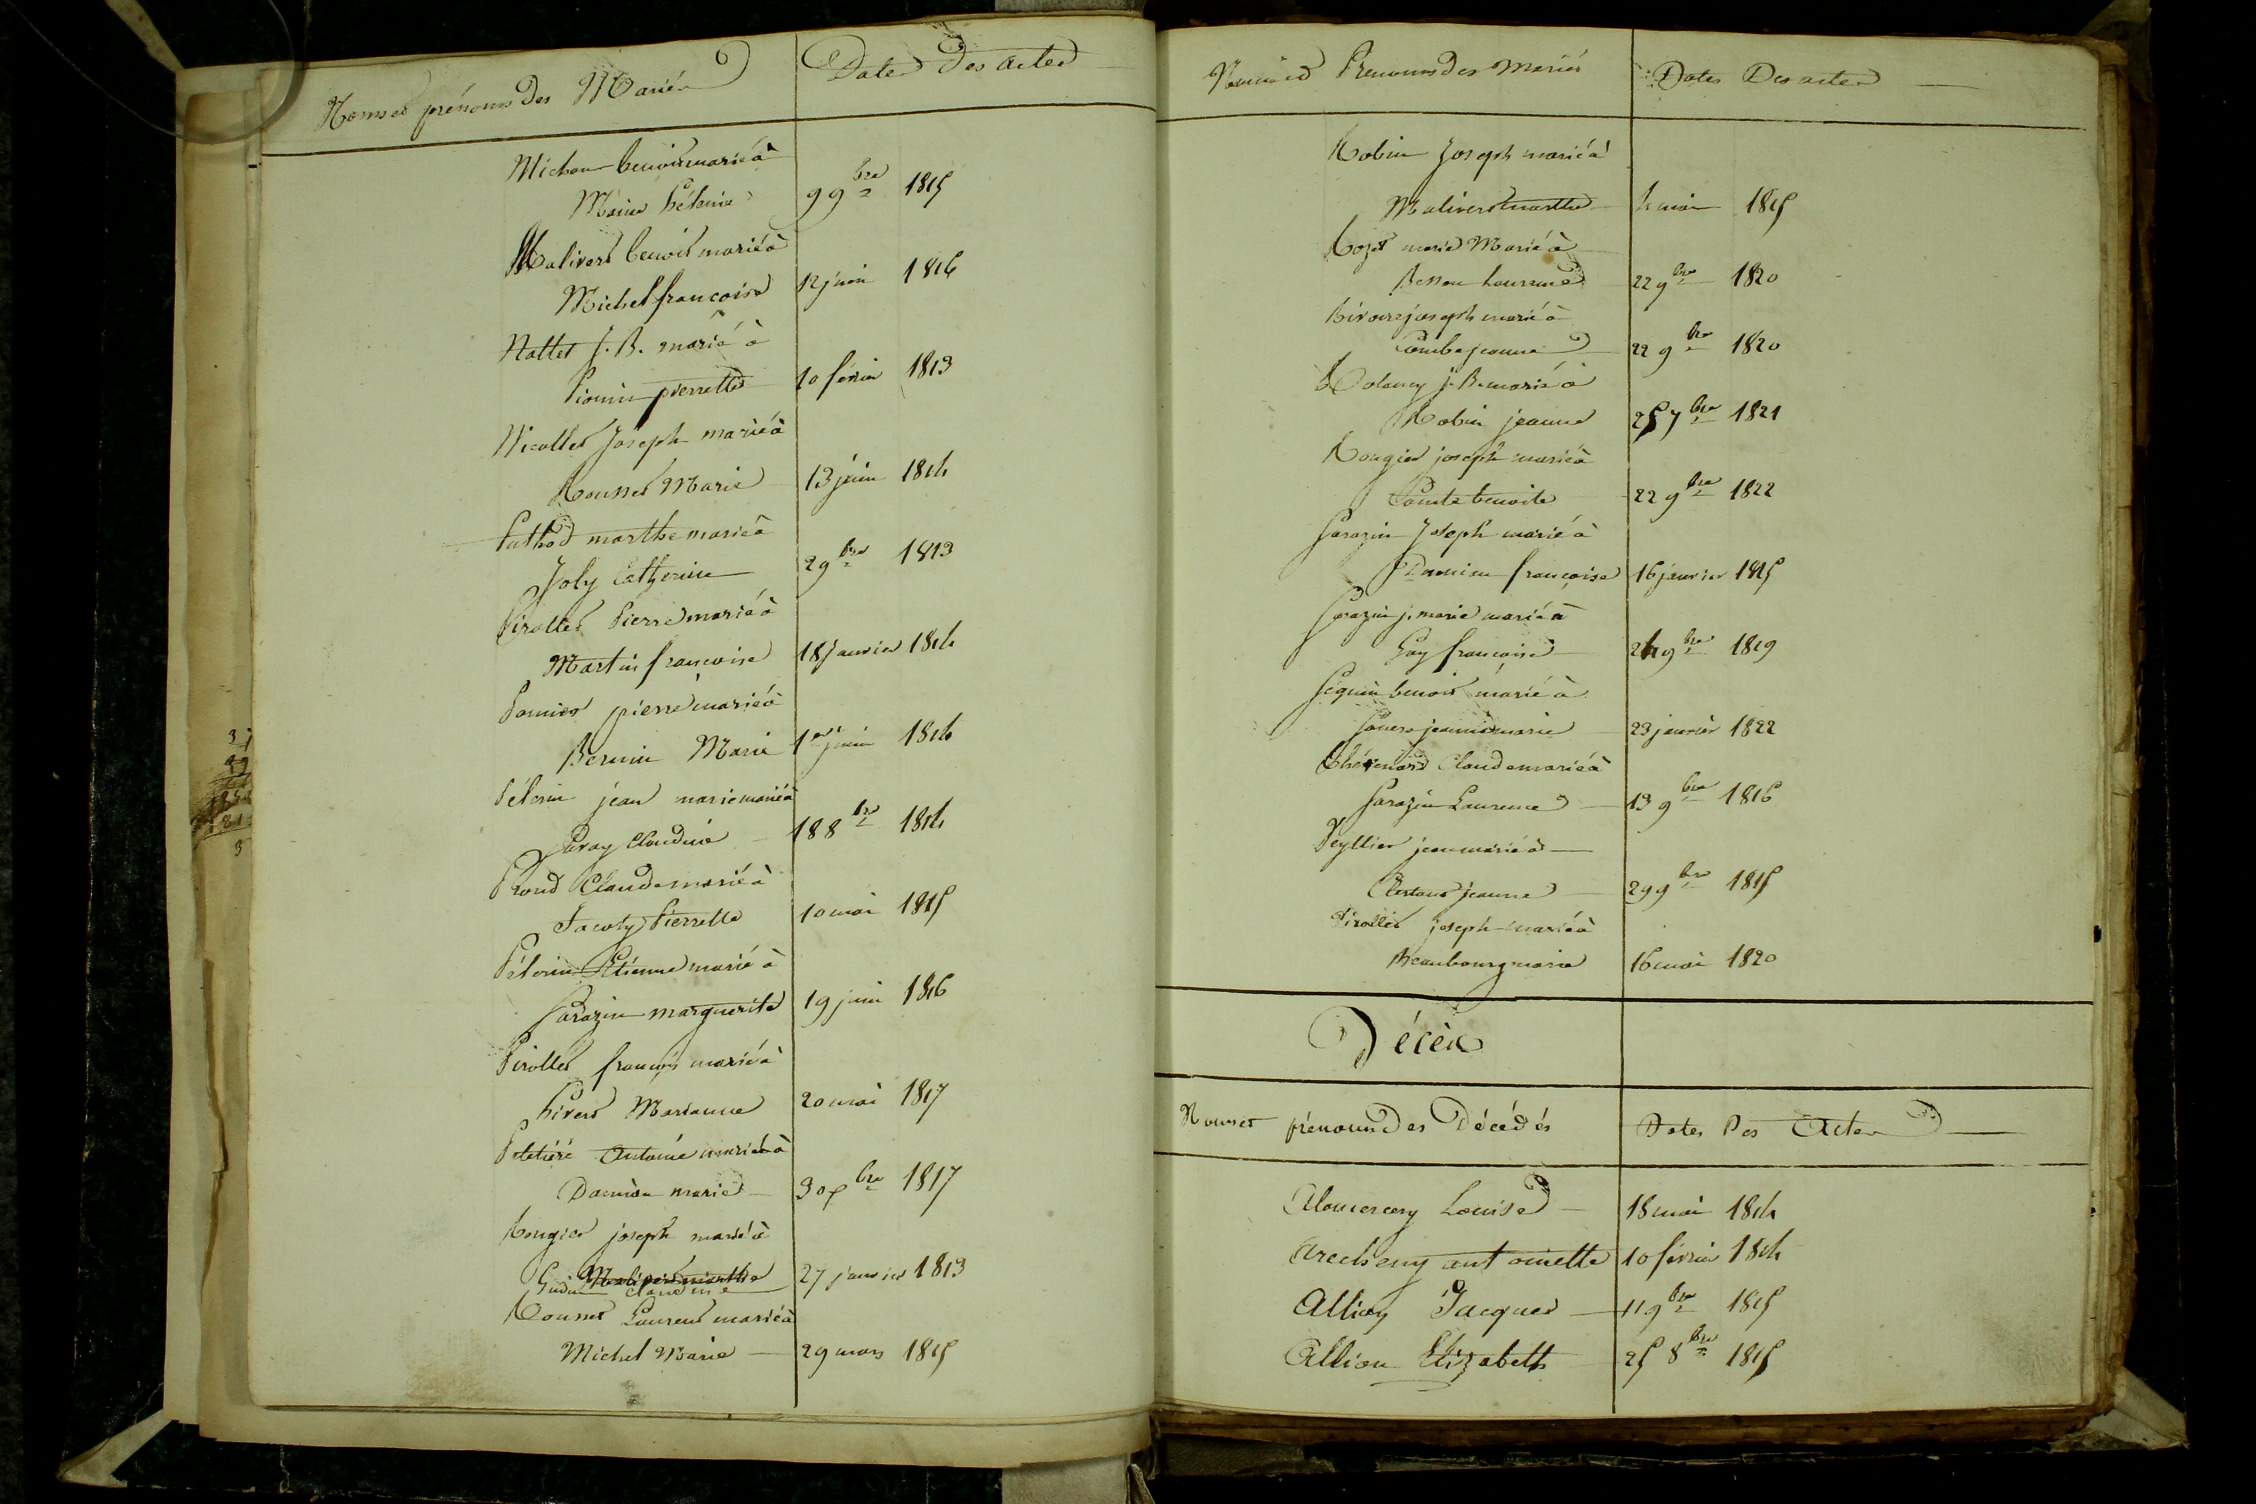 Noms et prénoms des Mariés
Dates Des actes
Michon benoit marié à
Marie
9 9bre 1815
Malivert benoit marié à
Michel francoise
12 juin 1816
Nallet J. B. marié à
Pionin pierrette
10 février 1813
Nicollet Joseph marié à
Rousset Marie
13 juin 1814
Puthod marthe marié à
Joly Catherine
2 9bre 1813
Pirollet Pierre marié à
Martin francoise
18 janvier 1814
Pomier pierre marié à
Bernin Marie
1er juin 1814
Pélerin jean marie marié à
Claudine
18 8bre 1814
Proud Claude marié à
Jacoty Pierrette
10 mai 1815
Pélerin Etienne marié à
Sarazin marguerite
19 juin 1816
Pirollet francois marié à
Marianne
20 mai 1817
antoine marié à
Damian marie
30 bre 1817
Rougier joseph marié à
Malivert marthe
Claudine
27 janvier 1813
Rousset Laurent marié à
Michel Marie
29 mars 1815
Noms et Prenoms des mariés
Dates Des actes
Robin Joseph marié à
Malivert marthe
4 mai 1815
Rozet marie Marié à
Besson
22 9bre 1820
joseph marié à
Combe jeanne
22 9bre 1820
j. B. marié à
Robin jeanne
25 7bre 1821
Rougier joseph marié à
Comte benoite
22 9bre 1822
Sarazin Joseph marié à
Damian francoise
16 janvier 1815
Sarazin j. marie marié à
Gay francoise
24 9bre 1819
Séguin benoit marié à
jeanne marie
23 janvier 1822
Thévenard Claude marié à
Sarazin Laurence
13 9bre 1816
Teyllier jean marié à
jeanne
29 9bre 1815
Tirollet joseph marié à
Beaubourg marie
16 mai 1820
Décès
Noms et prénoms des Décédés
Dates Des Actes
Louise
18 mai 1814
antoinette
10 février 1814
Allion Jacques
11 9bre 1815
Allion Elizabeth
25 8bre 1815